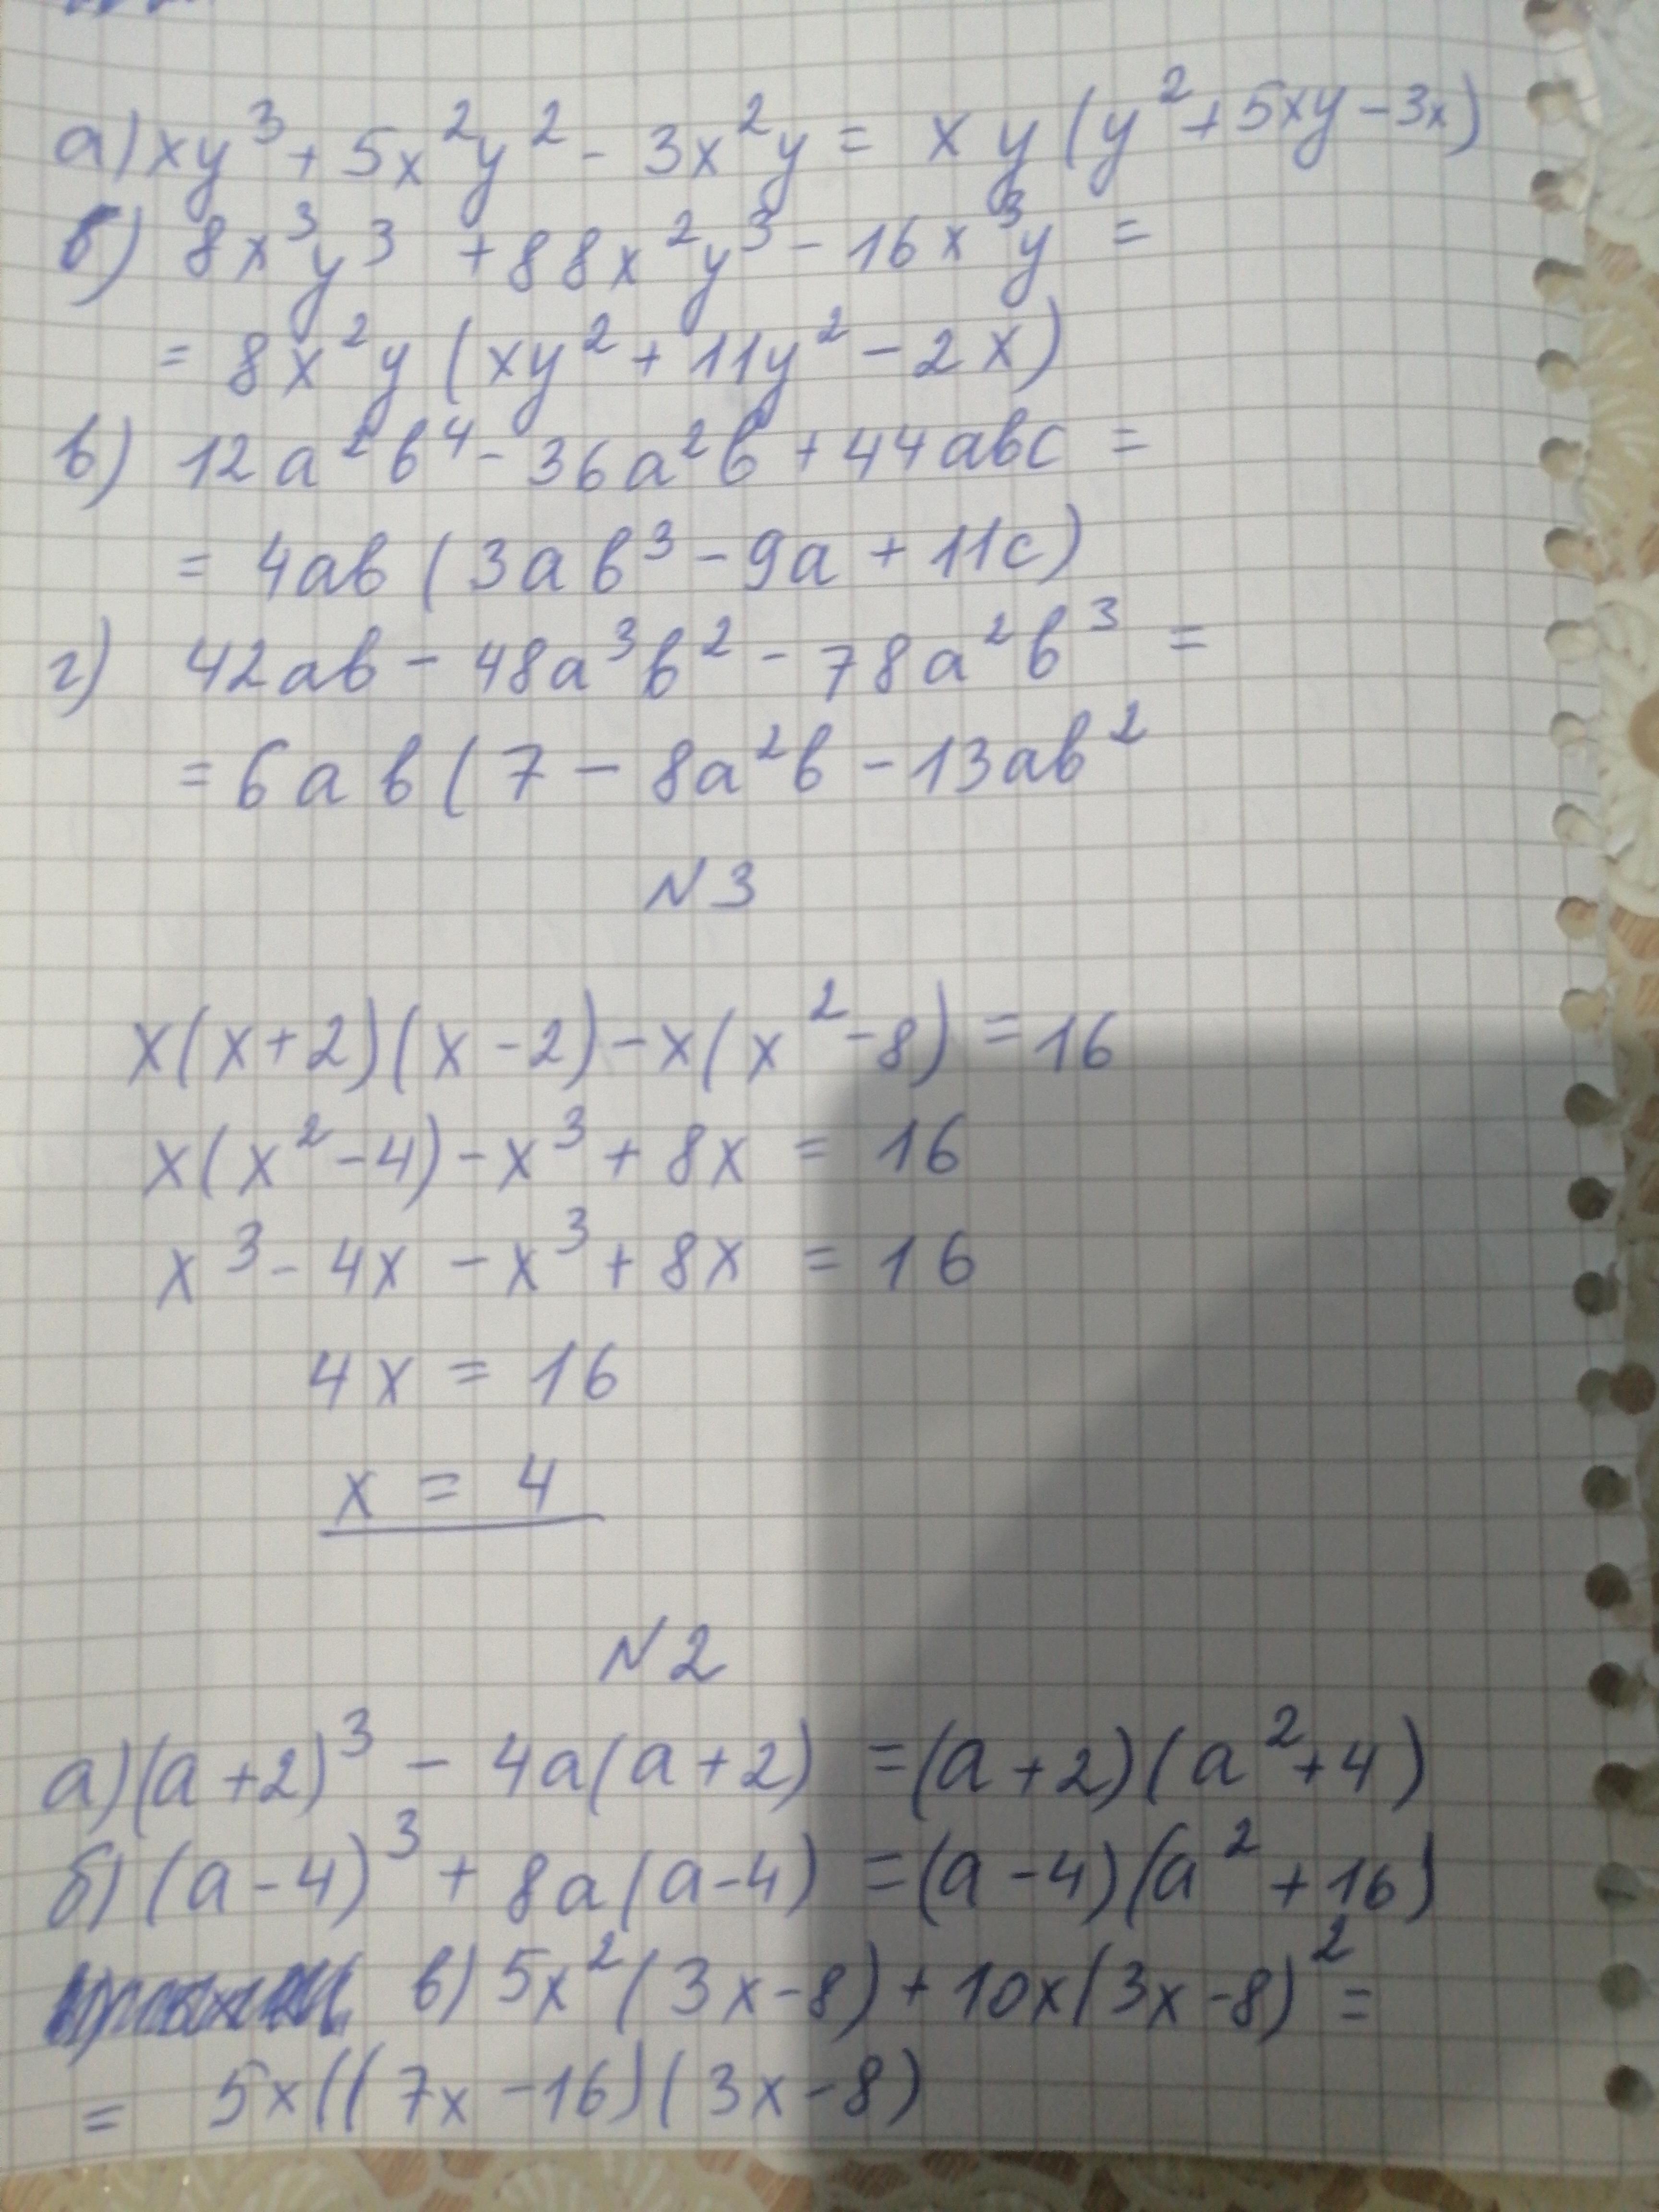 а) xy³ + 5x²y² - 3x²y = xy(y² + 5xy - 3x)
б) 8x³y³ + 88x²y³ - 16x³y =
= 8x²y(xy² + 11y² - 2x)
в) 12a²b⁴ - 36a²b + 44abc =
= 4ab(3ab³ - 9a + 11c)
г) 42ab - 48a³b² - 78a²b³ =
= 6ab(7 - 8a²b - 13ab²
N3
x(x+2)(x-2) - x(x²-8) = 16
x(x²-4) - x³ + 8x = 16
x³ - 4x - x³ + 8x = 16
4x = 16
x = 4
N2
а) (a+2)³ - 4a(a+2) = (a+2)(a²+4)
б) (a-4)³ + 8a(a-4) = (a-4)(a²+16)
в) 5x²(3x-8) + 10x(3x-8)² =
= 5x((7x-16)(3x-8)